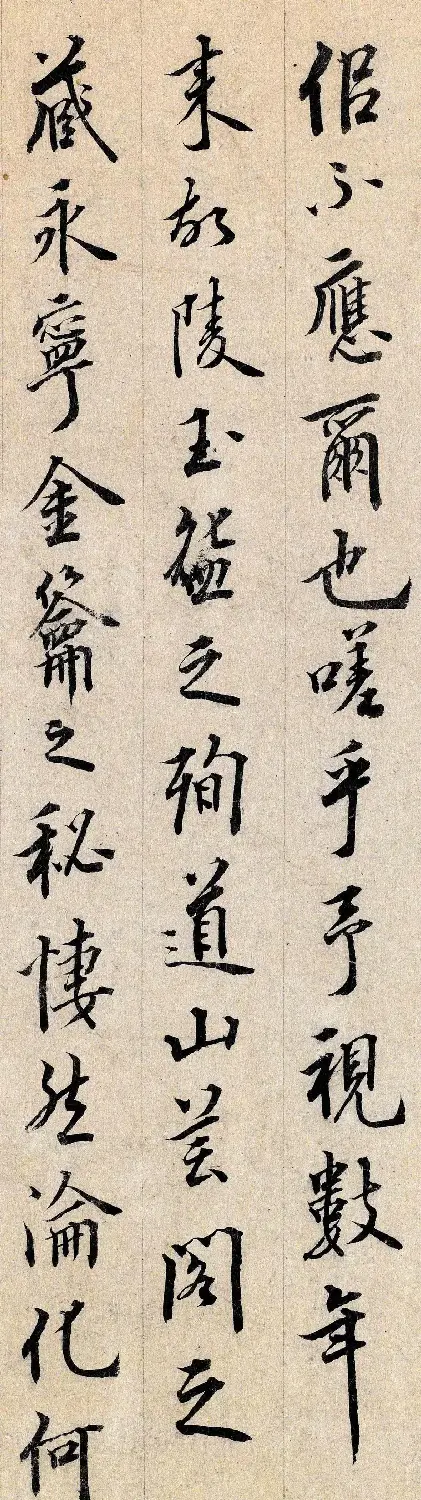 侣不應爾也嗟乎予視數年
来故陵玉盌之殉道山芸閣之
藏永寧金籥之秘悽然淪化何